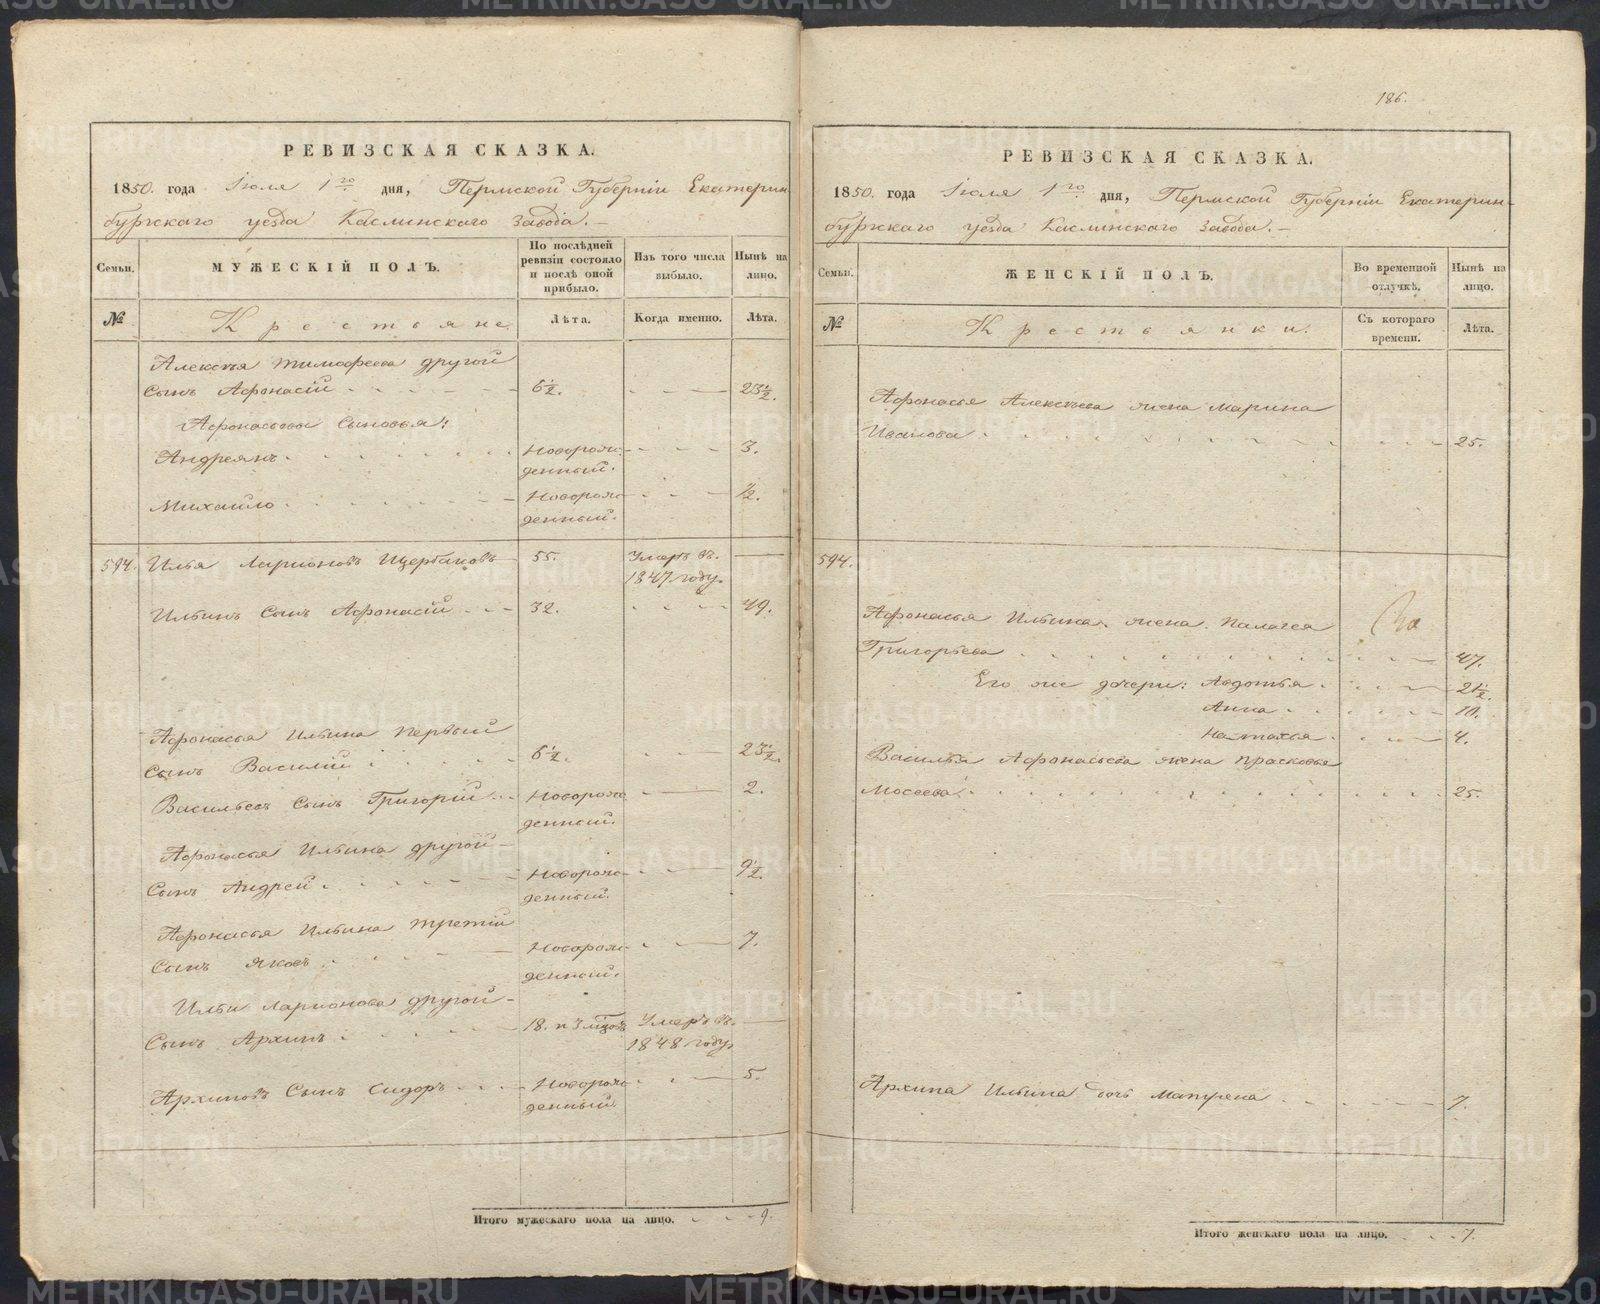 РЕВИЗСКАЯ СКАЗКА.
1850. года Іюля 1го дня, Пермской Губерніи Екатерин
бургскаго уезда Каслинскаго завода.
Семьи.
МУЖЕСКІЙ ПОЛЪ.
По послѣдней ревизіи состояло и послѣ оной прибыло.
Изъ того числа выбыло.
Нынѣ на лицо.
№
Крестьяне
Лѣта.
Когда именно.
Лѣта.
Алексѣя Тимофеева другой
сынъ Афонасій 6½. 23½.
Афонасьевы сыновья:
Андреянъ Новорож- 3.
денный.
Михайло Новорож- ½.
денный.
594. Илья Ларионовъ Щербаковъ 55. Умеръ въ
1847 году.
Ильинъ сынъ Афонасій 32. 49.
Афонасья Ильина первый
сынъ Василій 6½. 23½.
Васильевъ сынъ Григорій Новорож- 2.
денный.
Афонасья Ильина другой
сынъ Андрей Новорож- 9½.
денный.
Афонасья Ильина третій
сынъ Яковъ Новорож- 7.
денный.
Ильи Ларионова другой
сынъ Архипъ 18. и 3 Умеръ въ
1848 году.
Архиповъ сынъ Сидоръ Новорож- 5.
денный
Итого мужескаго пола на лицо. 9.
186.
РЕВИЗСКАЯ СКАЗКА.
1850. года Іюля 1го дня, Пермской Губерніи Екатерин-
бургскаго уезда Каслинскаго завода.
Семьи.
ЖЕНСКІЙ ПОЛЪ.
Во временной отлучкѣ.
Нынѣ на лицо.
№
Крестьянки.
Съ котораго времени.
Лѣта.
Афонасья Алексѣева жена Марина
Иванова 25.
594.
Афонасья Ильина жена Палагея
Григорьева 47.
Его же дочери: Авдотья 21½.
Анна 10.
Наталья 4.
Василья Афонасьева жена Прасковья
Мосеева 25.
Архипа Ильина дочь Матрена 7.
Итого женскаго пола на лицо. 7.
METRIKI.GASO-URAL.RU